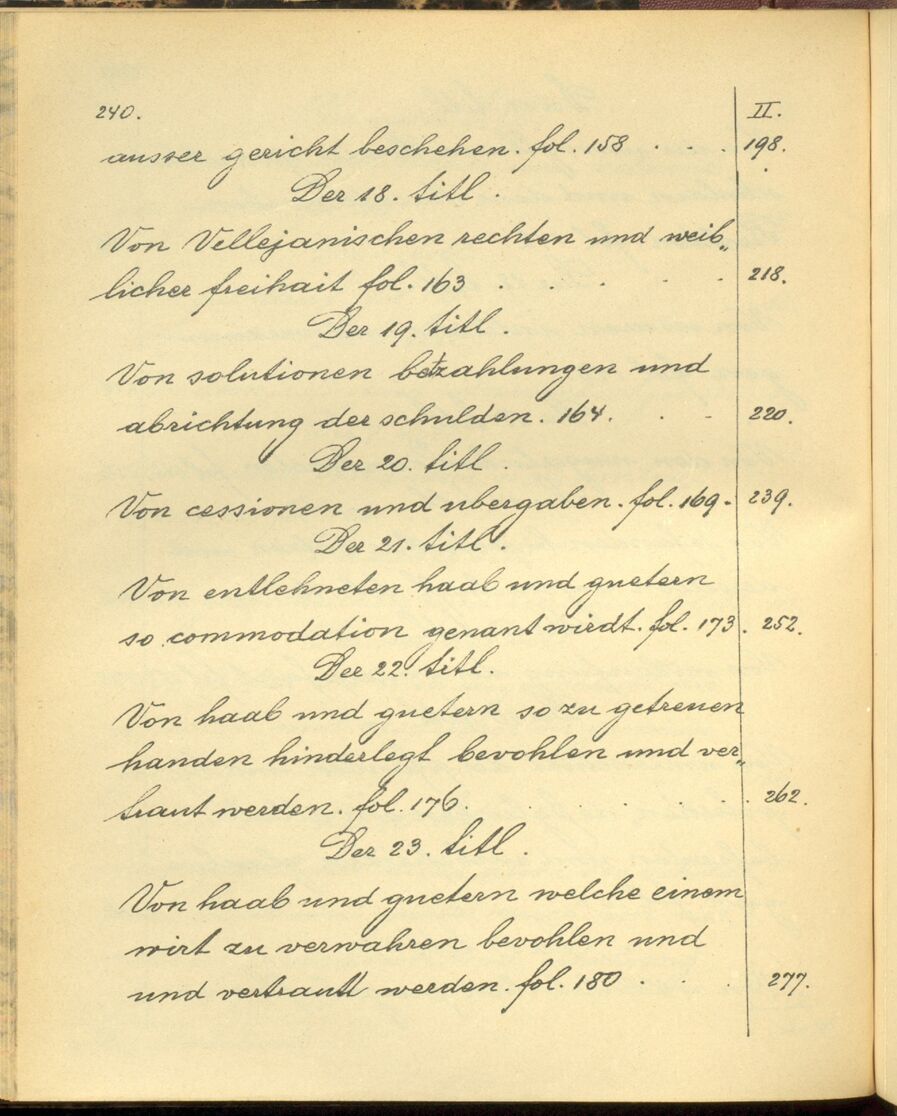 240. II.
ausser gericht beschehen. fol. 158 . . . 198.
Der 18. titl.
Von Vellejanischen rechten und weib„
licher freihait fol. 163 . . . . . . 218.
Der 19. titl.
Von solutionen betzahlungen und
abrichtung der schulden. 164. . . . 220.
Der 20. titl.
Von cessionen und ubergaben. fol. 169. 239.
Der 21. titl.
Von entlehneten haab und guetern
so commodation genant wirdt. fol. 173. 252.
Der 22. titl.
Von haab und guetern so zu getreuen
handen hinderlegt bevohlen und ver„
traut werden. fol. 176. . . . . . . 262.
Der 23. titl.
Von haab und guetern welche einem
wirt zu verwahren bevohlen und
und vertrautt werden. fol. 180 . . . 277.